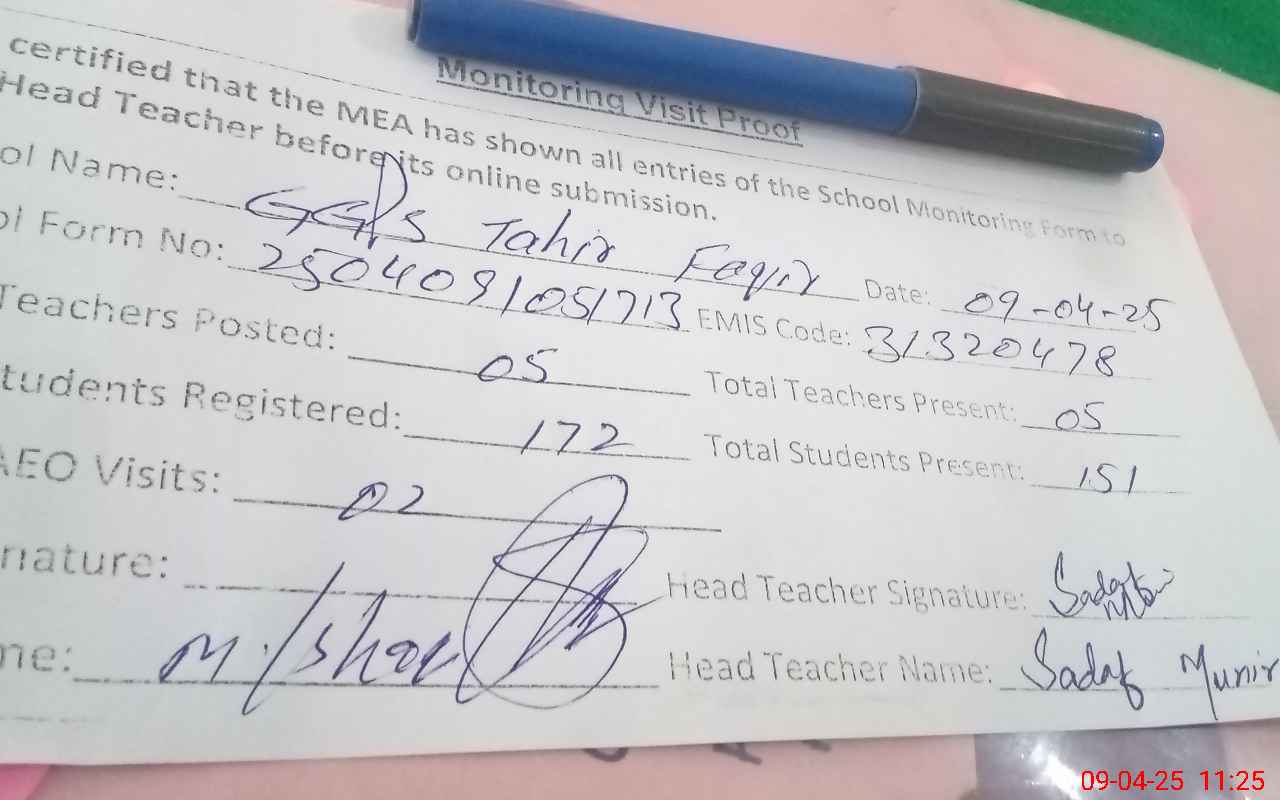 Monitoring Visit Proof
certified that the MEA has shown all entries of the School Monitoring Form to
Head Teacher before its online submission.
ol Name: GGPS Tahir Faqir Date: 09-04-25
ol Form No: 250409/051713 EMIS Code: 31320478
Teachers Posted: 05 Total Teachers Present: 05
tudents Registered: 172 Total Students Present: 151
AEO Visits: 02
nature: Head Teacher Signature:
me: M. Head Teacher Name: Sadaf Munir
09-04-25 11:25